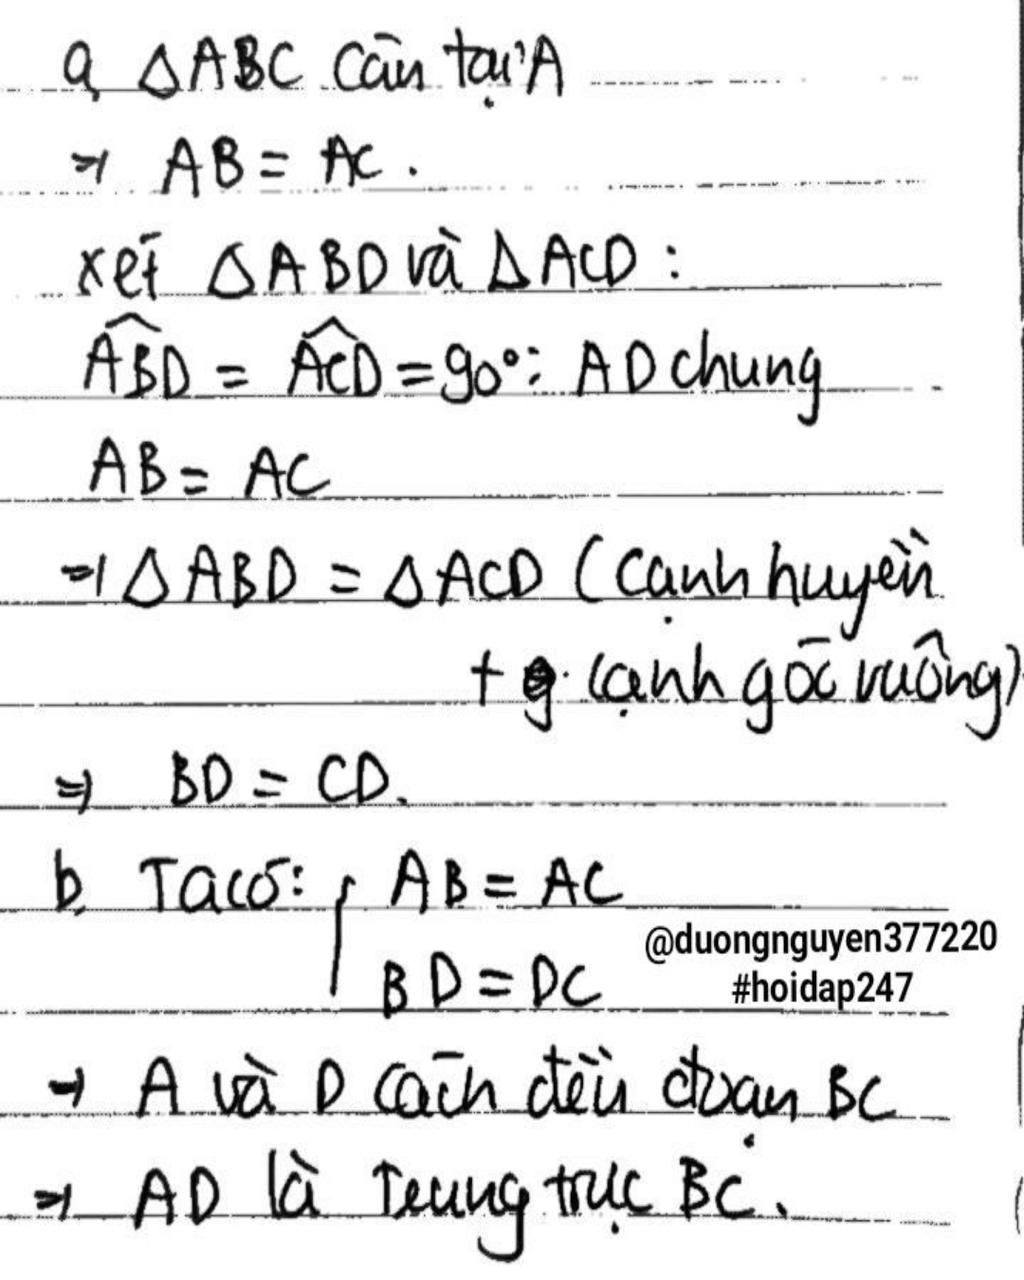 a, △ABC cân tại A
⇒ AB = AC.
xét △ABD và △ACD:
ABD = ACD = 90°: AD chung
AB = AC
⇒ △ABD = △ACD (cạnh huyền
+ cạnh góc vuông)
⇒ BD = CD.
b, Ta có: { AB = AC
BD = DC
@duongnguyen377220
#hoidap247
→ A và D cách đều đoạn BC
⇒ AD là Trung trực BC.